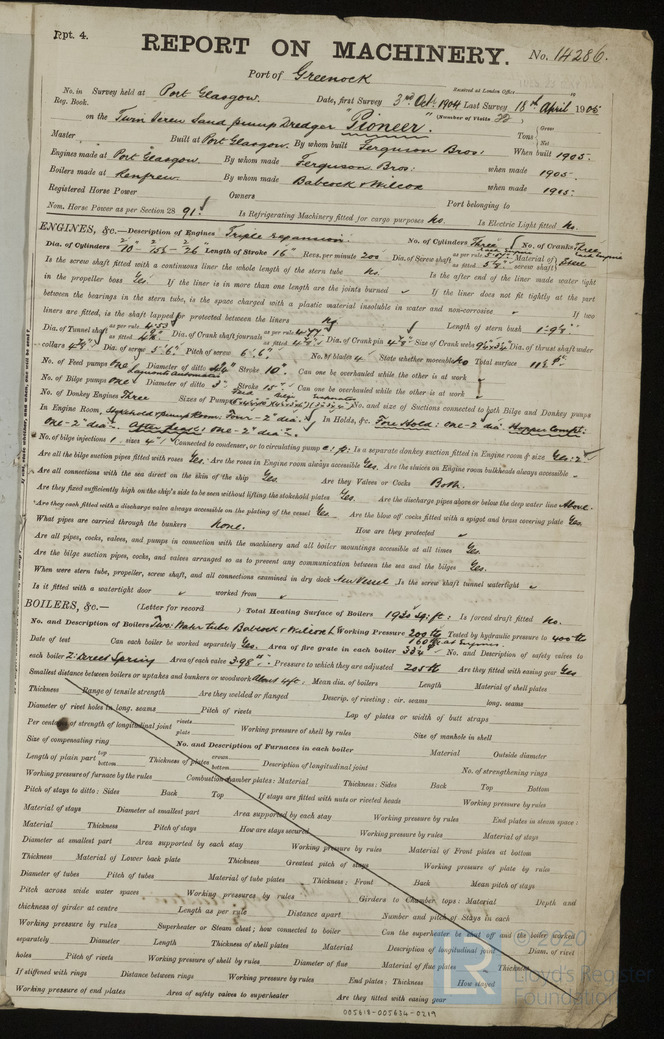 Rpt. 4.
REPORT ON MACHINERY.
No. 14286.
Port of Greenock
Received at London Office
No. in Survey held at Port Glasgow. Date, first Survey 3rd Oct. 1904 Last Survey 18th April 1905
Reg. Book. (Number of Visits )
on the Twin Screw Sand pump Dredger "Pioneer". Tons { Gross Net
Master Built at Port Glasgow. By whom built Ferguson Bros: When built 1905.
Engines made at Port Glasgow. By whom made Ferguson Bros: when made 1905.
Boilers made at Renfrew. By whom made Babcock & Wilcox when made 1905.
Registered Horse Power Owners Port belonging to
Nom. Horse Power as per Section 28 91. Is Refrigerating Machinery fitted for cargo purposes No. Is Electric Light fitted No.
ENGINES, &c.—Description of Engines Triple expansion. No. of Cylinders Three No. of Cranks Three
Dia. of Cylinders Length of Stroke 16" Revs. per minute 200 Dia. of Screw shaft as per rule as fitted Material of screw shaft Steel
Is the screw shaft fitted with a continuous liner the whole length of the stern tube No. Is the after end of the liner made water tight
in the propeller boss Yes. If the liner is in more than one length are the joints burned ✓ If the liner does not fit tightly at the part
between the bearings in the stern tube, is the space charged with a plastic material insoluble in water and non-corrosive If two
liners are fitted, is the shaft lapped or protected between the liners No Length of stern bush
Dia. of Tunnel shaft as per rule 4.53 as fitted Dia. of Crank shaft journals as per rule 4.77 as fitted Dia. of Crank pin Size of Crank webs Dia. of thrust shaft under
collars Dia. of screw 5'.6" Pitch of screw 6'.6" No. of blades 4 State whether moveable No Total surface
No. of Feed pumps One Diameter of ditto Stroke 10" Can one be overhauled while the other is at work
No. of Bilge pumps One Diameter of ditto 3" Stroke 15" Can one be overhauled while the other is at work
No. of Donkey Engines Three Sizes of Pumps No. and size of Suctions connected to both Bilge and Donkey pumps
In Engine Room, & pump Room: Four - 2" dia. In Holds, &c. Fore Hold: one - 2" dia. Hopper Compt:
one - 2" dia. After Peak: one - 2" dia.
No. of bilge injections 1 sizes 4" Connected to condenser, or to circulating pump c.p. Is a separate donkey suction fitted in Engine room & size Yes: 2"
Are all the bilge suction pipes fitted with roses Yes. Are the roses in Engine room always accessible Yes. Are the sluices on Engine room bulkheads always accessible
Are all connections with the sea direct on the skin of the ship Yes. Are they Valves or Cocks Both.
Are they fixed sufficiently high on the ship's side to be seen without lifting the stokehold plates Yes. Are the discharge pipes above or below the deep water line Above.
Are they each fitted with a discharge valve always accessible on the plating of the vessel Yes. Are the blow off cocks fitted with a spigot and brass covering plate Yes.
What pipes are carried through the bunkers None. How are they protected
Are all pipes, cocks, valves, and pumps in connection with the machinery and all boiler mountings accessible at all times Yes.
Are the bilge suction pipes, cocks, and valves arranged so as to prevent any communication between the sea and the bilges Yes.
When were stern tube, propeller, screw shaft, and all connections examined in dry dock New Vessel. Is the screw shaft tunnel watertight
Is it fitted with a watertight door worked from
BOILERS, &c.— (Letter for record ) Total Heating Surface of Boilers 1930 Sq. ft. Is forced draft fitted No.
No. and Description of Boilers Two: Water tube Babcock & Wilcox Working Pressure 200 lb Tested by hydraulic pressure to 400 lb
160 lb at Engines.
Date of test Can each boiler be worked separately Yes. Area of fire grate in each boiler No. and Description of safety valves to
each boiler 2: Direct Spring Area of each valve 3.98 Pressure to which they are adjusted 205 lb Are they fitted with easing gear Yes
Smallest distance between boilers or uptakes and bunkers or woodwork About 4 ft: Mean dia. of boilers Length Material of shell plates
Thickness Range of tensile strength Are they welded or flanged Descrip. of riveting: cir. seams long. seams
Diameter of rivet holes in long. seams Pitch of rivets Lap of plates or width of butt straps
Per centages of strength of longitudinal joint rivets plate Working pressure of shell by rules Size of manhole in shell
Size of compensating ring No. and Description of Furnaces in each boiler Material Outside diameter
Length of plain part top bottom Thickness of plates crown bottom Description of longitudinal joint No. of strengthening rings
Working pressure of furnace by the rules Combustion chamber plates: Material Thickness: Sides Back Top Bottom
Pitch of stays to ditto: Sides Back Top If stays are fitted with nuts or riveted heads Working pressure by rules
Material of stays Diameter at smallest part Area supported by each stay Working pressure by rules End plates in steam space:
Material Thickness Pitch of stays How are stays secured Working pressure by rules Material of stays
Diameter at smallest part Area supported by each stay Working pressure by rules Material of Front plates at bottom
Thickness Material of Lower back plate Thickness Greatest pitch of stays Working pressure of plate by rules
Diameter of tubes Pitch of tubes Material of tube plates Thickness: Front Back Mean pitch of stays
Pitch across wide water spaces Working pressures by rules Girders to Chamber tops: Material Depth and
thickness of girder at centre Length as per rule Distance apart Number and pitch of Stays in each
Working pressure by rules Superheater or Steam chest; how connected to boiler Can the superheater be shut off and the boiler worked
separately Diameter Length Thickness of shell plates Material Description of longitudinal joint Diam. of rivet
holes Pitch of rivets Working pressure of shell by rules Diameter of flue Material of flue plates Thickness
If stiffened with rings Distance between rings Working pressure by rules End plates: Thickness How stayed
Working pressure of end plates Area of safety valves to superheater Are they fitted with easing gear
© 2020
Lloyd's Register
Foundation
005618-005634-0219